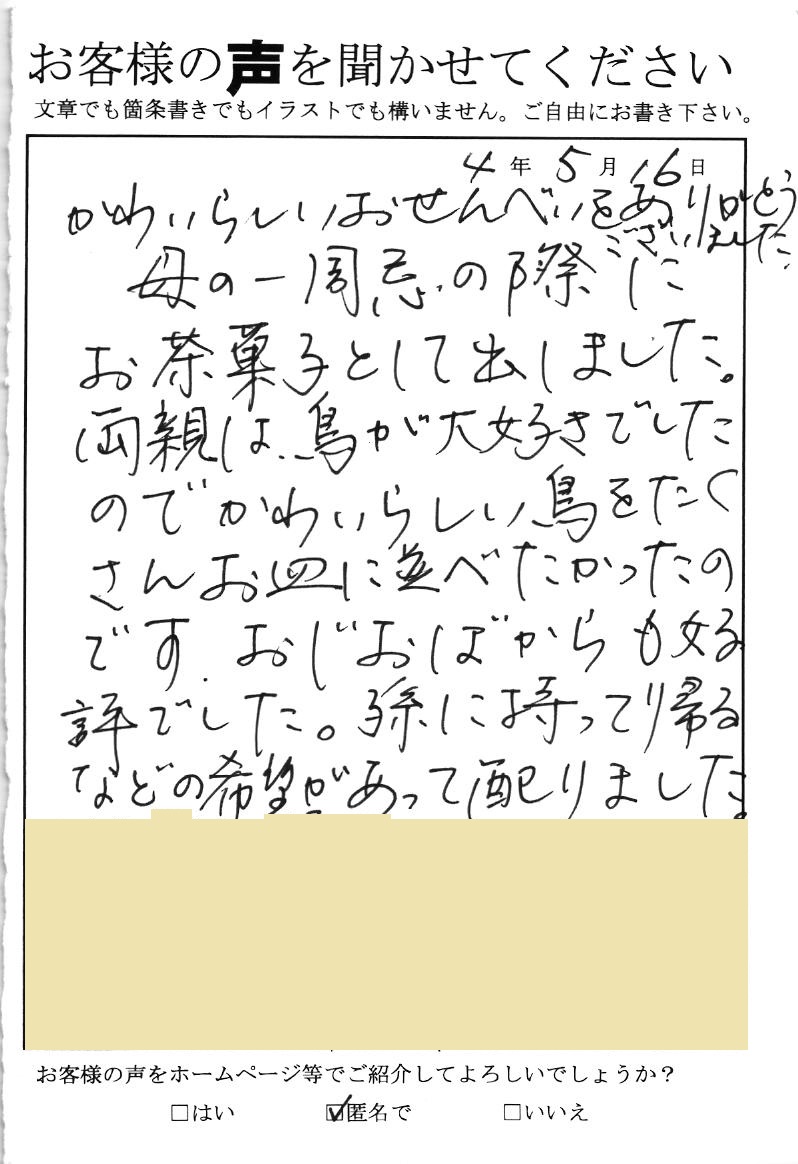 お客様の声を聞かせてください
文章でも箇条書きでもイラストでも構いません。ご自由にお書き下さい。
4年5月16日
かわいらしいおせんべいをありがとう
ございました。
母の一周忌の際に
お茶菓子として出しました。
両親は、鳥が大好きでした
のでかわいらしい鳥をたく
さんお皿に並べたかったの
です。おじおばからも好
評でした。孫に持って帰る
などの希望があって配りました
お客様の声をホームページ等でご紹介してよろしいでしょうか？
□はい ☑匿名で □いいえ